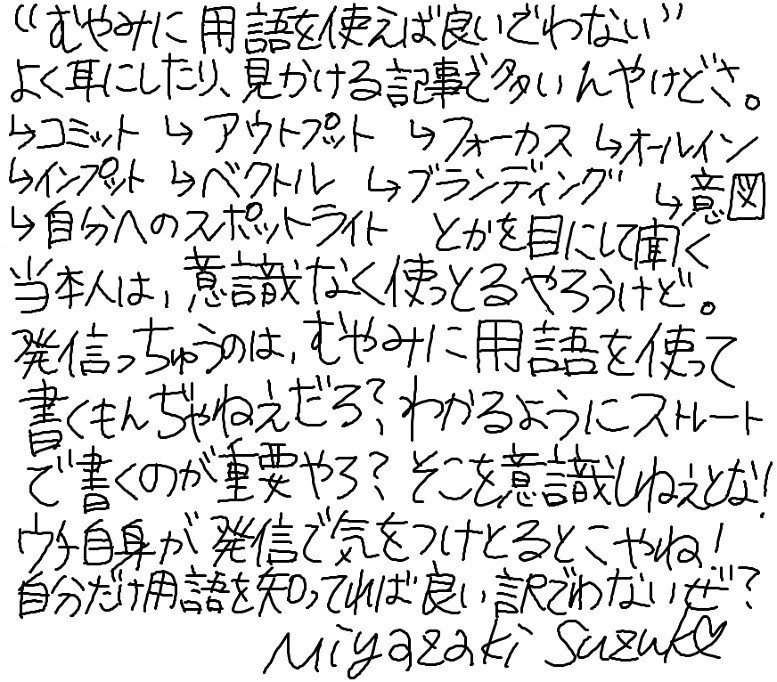 “むやみに用語を使えば良いでわない”
よく耳にしたり、見かける記事で多いんやけどさ。
↳コミット ↳アウトプット ↳フォーカス ↳オールイン
↳インプット ↳ベクトル ↳ブランディング ↳意図
↳自分へのスポットライト とかを目にして聞く
当本人は、意識なく使っとるやろうけど。
発信っちゅうのは、むやみに用語を使って
書くもんぢゃねえだろ?わかるようにストレート
で書くのが重要やろ?そこを意識しねえとな!
ウチ自身が発信で気をつけとるとこやね!
自分だけ用語を知ってれば良い訳でわないぜ?
Miyazaki Suzuki♡